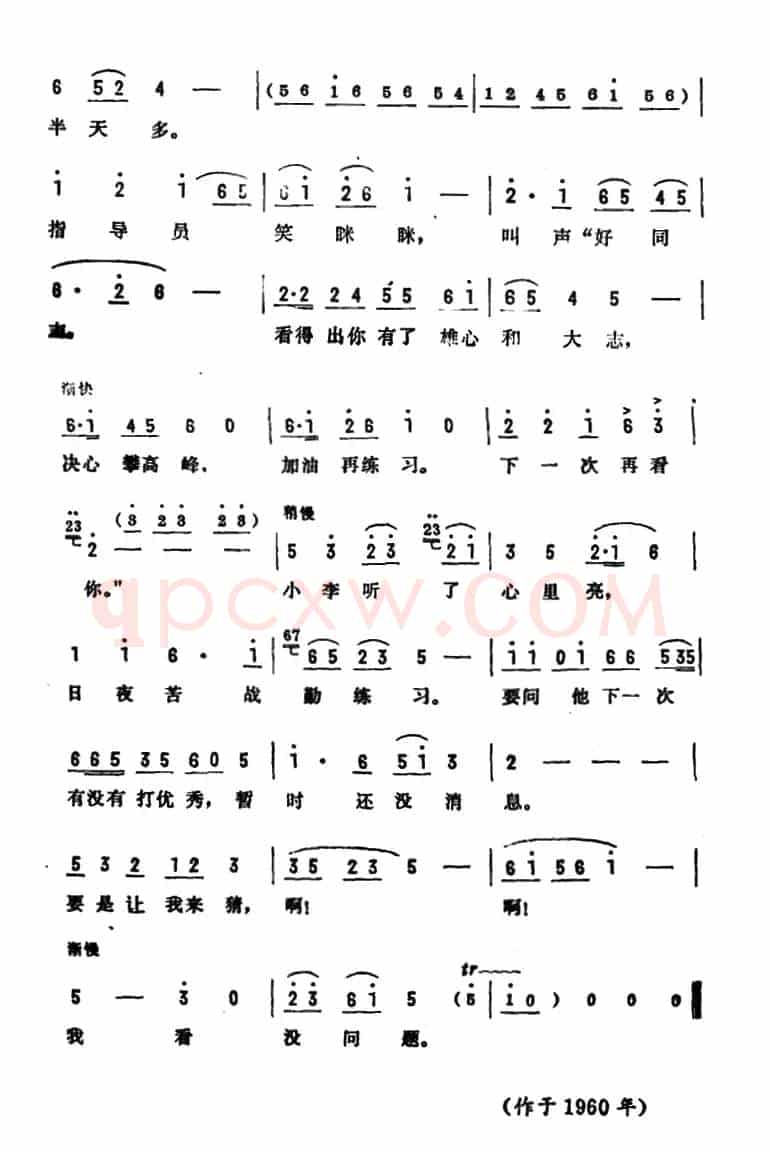 6 52 4 — | (56 i6 56 54 | 12 45 6i 56) |
半 天 多。
i 2 i 65 | 6i 26 i — | 2· i 65 45 |
指 导 员 笑 眯 眯， 叫 声“好 同
6· 2 6 — | 2·2 24 55 6i | 65 4 5 — |
志。 看得 出你 有了 雄心 和 大 志，
渐快
6·i 45 6 0 | 6·i 26 i 0 | 2 2 i 6 3 |
决心 攀高 峰， 加油 再练 习。 下 一 次 再 看
23 2 — — — (3 23 23) | 稍慢 5 3 23 23 2i | 3 5 2·i 6 |
你。” 小 李 听 了 心 里 亮，
1 i 6· i | 67 65 23 5 — | ii 0i 66 535 |
日 夜 苦 战 勤 练 习。 要问 他 下一 次
665 35 60 5 | i· 6 5i 3 | 2 — — — |
有没有 打优 秀，暂 时 还 没 消 息。
5 3 2 12 3 | 35 23 5 — | 6i 56 i — |
要 是 让 我来 猜， 啊！ 啊！
渐慢 tr
5 — 3 0 | 23 6i 5 (5 | i0) 0 0 0
我 看 没 问 题。
（作于 1960 年）
qpcxw.com